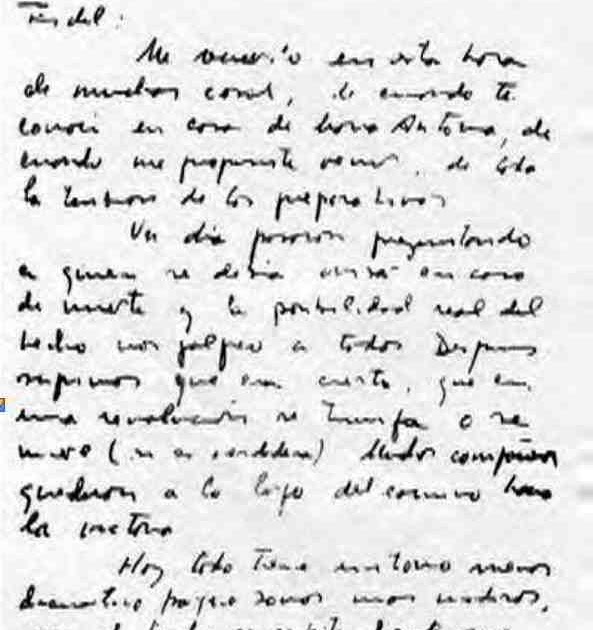 Fidel:
Me acuerdo en esta hora
de muchas cosas, de cuando te
conocí en casa de María Antonia, de
cuando me propusiste venir, de toda
la tensión de los preparativos
Un día pasaron preguntando
a quien se debía avisar en caso
de muerte y la posibilidad real del
hecho nos golpeó a todos Después
supimos que era cierto, que en
una revolución se triunfa o se
muere (si es verdadera) Muchos compañeros
quedaron a lo largo del camino hacia
la victoria
Hoy todo tiene un tono menos
dramático porque somos más maduros,